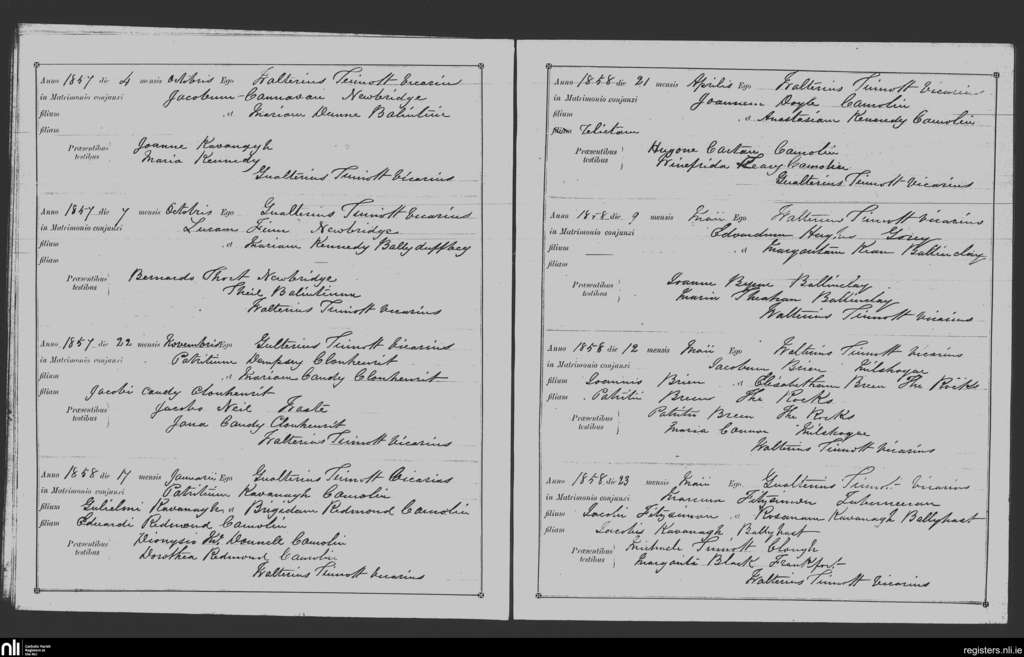 Anno 1857 die 4 mensis Octobris Ego Walterius Sinnott Vicarius
in Matrimonio conjunxi Jacobum Cannavan Newbridge
filium et Mariam Dunne
filiam
Præsentibus testibus Joanne Kavanagh
Maria Kennedy
Gualterius Sinnott Vicarius
Anno 1857 die 7 mensis Octobris Ego Gualterius Sinnott Vicarius
in Matrimonio conjunxi Lucam Finn Newbridge
filium et Mariam Kennedy Ballyduffbeg
filiam
Præsentibus testibus Bernardo Newbridge
Walterius Sinnott Vicarius
Anno 1857 die 22 mensis Novembris Ego Gulterius Sinnott Vicarius
in Matrimonio conjunxi Patritium Dempsey Clonhenrit
filium et Mariam Candy Clonhenrit
filiam Jacobi Candy Clonhenrit
Præsentibus testibus Jacobo Neil
Jana Candy Clonhenrit
Walterius Sinnott Vicarius
Anno 1858 die 17 mensis Januarii Ego Gualterius Sinnott Vicarius
in Matrimonio conjunxi Patritium Kavanagh Camolin
filium Gulielmi Kavanagh et Brigidam Redmond Camolin
filiam Eduardi Redmond Camolin
Præsentibus testibus Dionysio Donnell Camolin
Dorothea Redmond Camolin
Walterius Sinnott Vicarius
Anno 1858 die 21 mensis Aprilis Ego Walterius Sinnott Vicarius
in Matrimonio conjunxi Joannem Doyle Camolin
filium et Anastasiam Kennedy Camolin
filiam relictam
Præsentibus testibus Hugone Camolin
Winefrida Leary Camolin
Gualterius Sinnott Vicarius
Anno 1858 die 9 mensis Maii Ego Walterius Sinnott Vicarius
in Matrimonio conjunxi Edvardum Hughes Gorey
filium et Margaritam Ballinclay
filiam
Præsentibus testibus Joanne Byrne Ballinclay
Maria Ballinclay
Walterius Sinnott Vicarius
Anno 1858 die 12 mensis Maii Ego Walterius Sinnott Vicarius
in Matrimonio conjunxi Jacobum Brien
filium Joannis Brien et Elisabetham Breen The Rocks
filiam Patritii Breen The Rocks
Præsentibus testibus Patritio Breen The Rocks
Maria Connor
Walterius Sinnott Vicarius
Anno 1858 die 23 mensis Maii Ego Gualterius Sinnott Vicarius
in Matrimonio conjunxi Fitzsimon
filium Jacobi Fitzsimon et Rosannam Kavanagh
filiam Jacobi Kavanagh
Præsentibus testibus Michaele Sinnott Clough
Margarita Black Frankfort
Walterius Sinnott Vicarius
nli Catholic Parish Registers at the NLI
registers.nli.ie